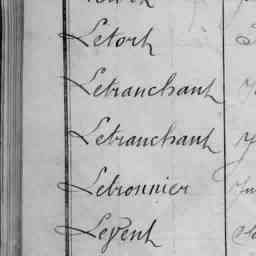 Letort
Letranchant
Letranchant
Letronnier
Levent